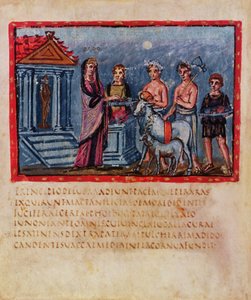 PRINCIPIODELUBRAADEUNTPACEMQUEPERARAS
EXQUIRUNTMACTANTLECTASDEMOREBIDENTIS
LEGIFERAECERERIPHOEBOQUEPATRIQUELYAEO
IUNONIANTEOMNISCUIVINCLAIUGALIACURAE
IPSATENENSDEXTRAPATERAMPULCHERRIMADIDO
CANDENTISVACCAEMEDIAINTERCORNUAFUNDIT